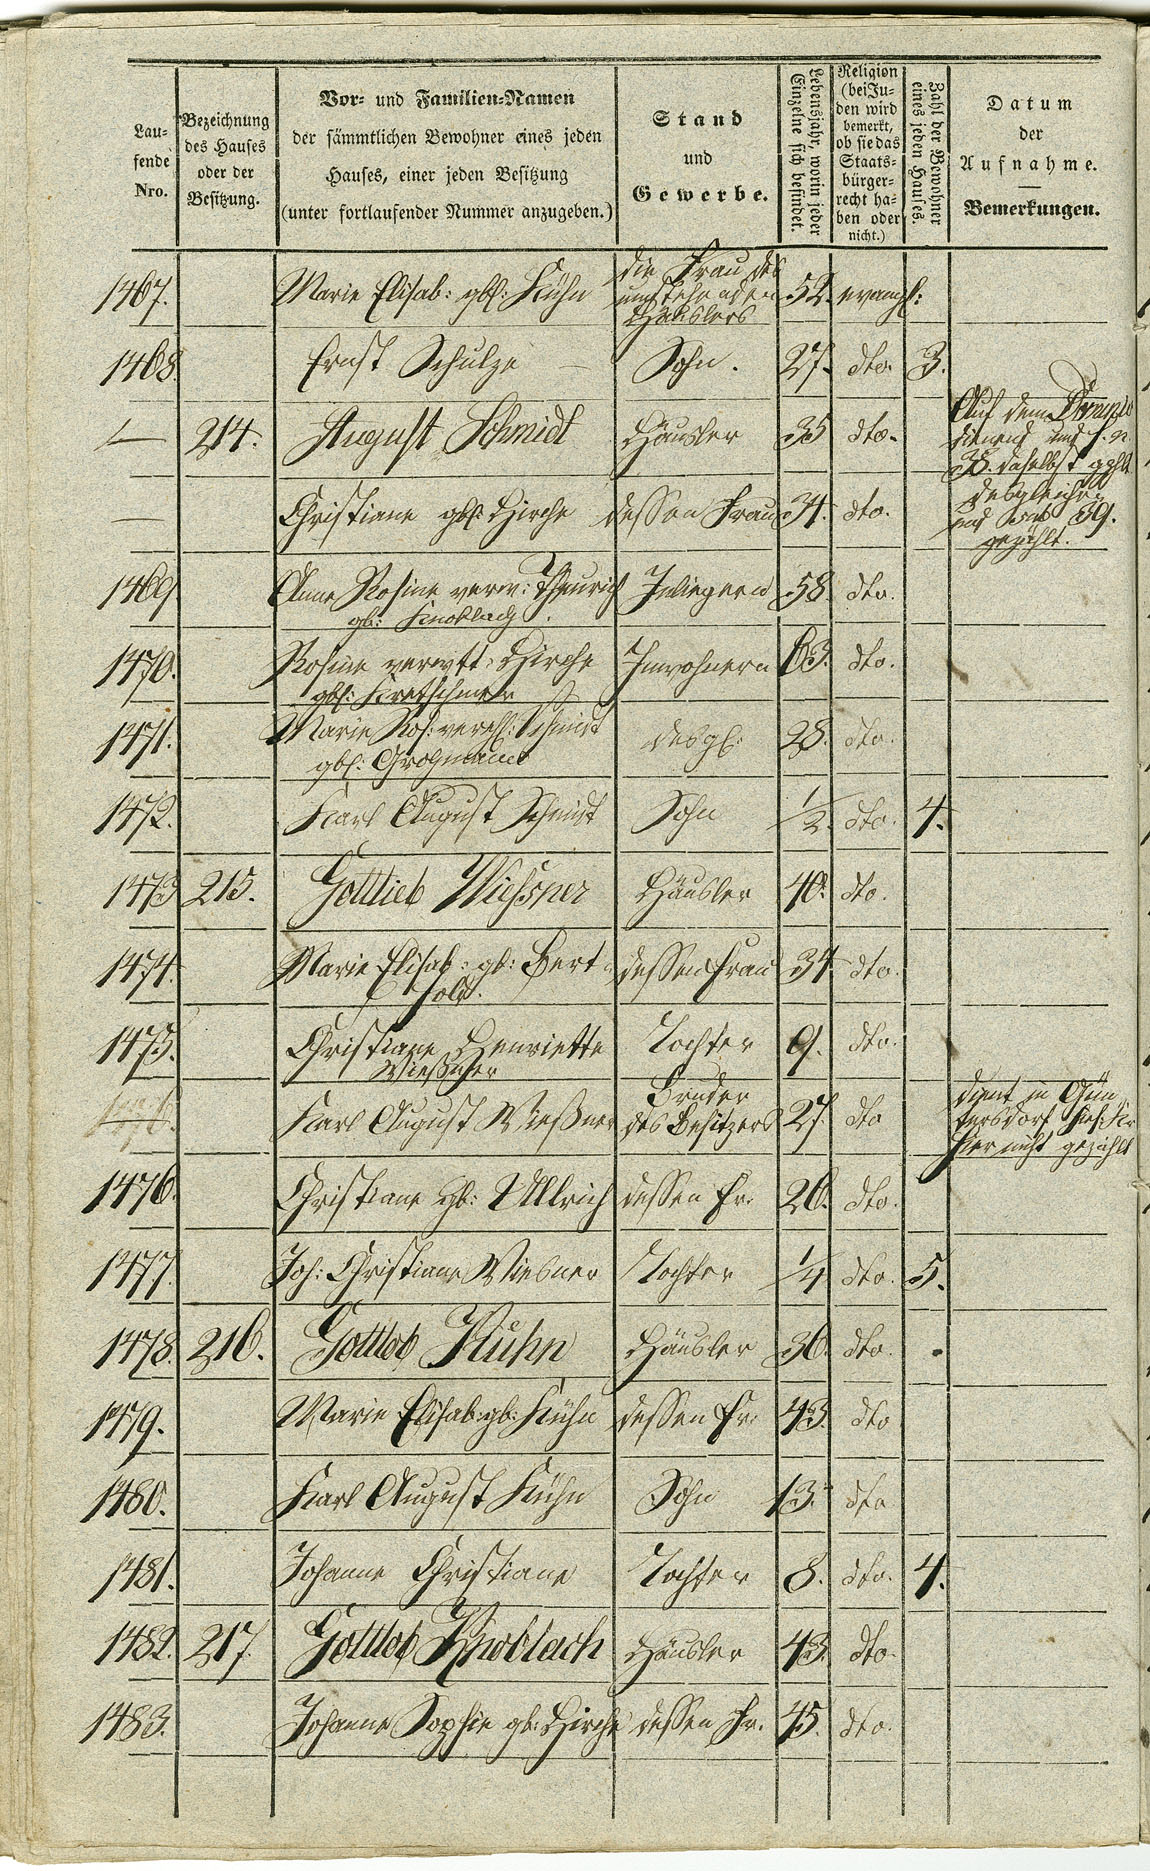 Lau-
fende
Nro.
Bezeichnung
des Hauses
oder der
Besitzung.
Vor- und Familien-Namen
der sämmtlichen Bewohner eines jeden
Hauses, einer jeden Besitzung
(unter fortlaufender Nummer anzugeben.)
Stand
und
Gewerbe.
Lebensjahr, worin jeder
Einzelne sich befindet.
Religion
(bei Ju-
den wird
bemerkt,
ob sie das
Staats-
bürger-
recht ha-
ben oder
nicht.)
Zahl der Bewohner
eines jeden Hauses.
Datum
der
Aufnahme.
Bemerkungen.
1467. Marie Elisab: gb: Kühn die Frau des
umstehenden
Häuslers 52. evangl:
1468. Ernst Schulze Sohn. 27. dto. 3.
— 214. August Schmidt Häusler 35 dto.
Auf dem
dienend und
38. daselbst gezählt
— Christiane gb: Hirche dessen Frau 34. dto.
desgleichen
und 39.
gezählt.
1469. Anne Rosine verw: Theurich
gb: Knoblach. Inliegerin 58. dto.
1470. Rosine verwtt: Hirche
gb: Kretschmer Inwohnern 63. dto.
1471. Marie Ros: verehl: Schmidt
gb: Großmann desgl: 28. dto.
1472. Karl August Schmidt Sohn 1/2. dto. 4.
1473 215. Gottlieb Wießner Häusler 40. dto.
1474. Marie Elisab: gb: Bert-
hold. dessen Frau 34. dto.
1475. Christiane Henriette
Wießner Tochter 9. dto.
1476. Karl August Wießner Bruder
des Besitzers 27. dto
dient in Gün
tersdorf
hier nicht gezählt
1476. Christiane gb: Ullrich dessen Fr. 26. dto.
1477. Joh: Christiane Wiesner Tochter 1/4 dto. 5.
1478. 216. Gottlob Kuhn Häusler 36. dto.
1479. Marie Elisab: gb: Kühn dessen Fr. 43. dto
1480. Karl August Kühn Sohn 13. dto
1481. Johanne Christiane Tochter 8. dto. 4.
1482. 217. Gottlob Knoblach Häusler 43. dto.
1483. Johanne Sophie gb: Hirche dessen Fr. 45. dto.